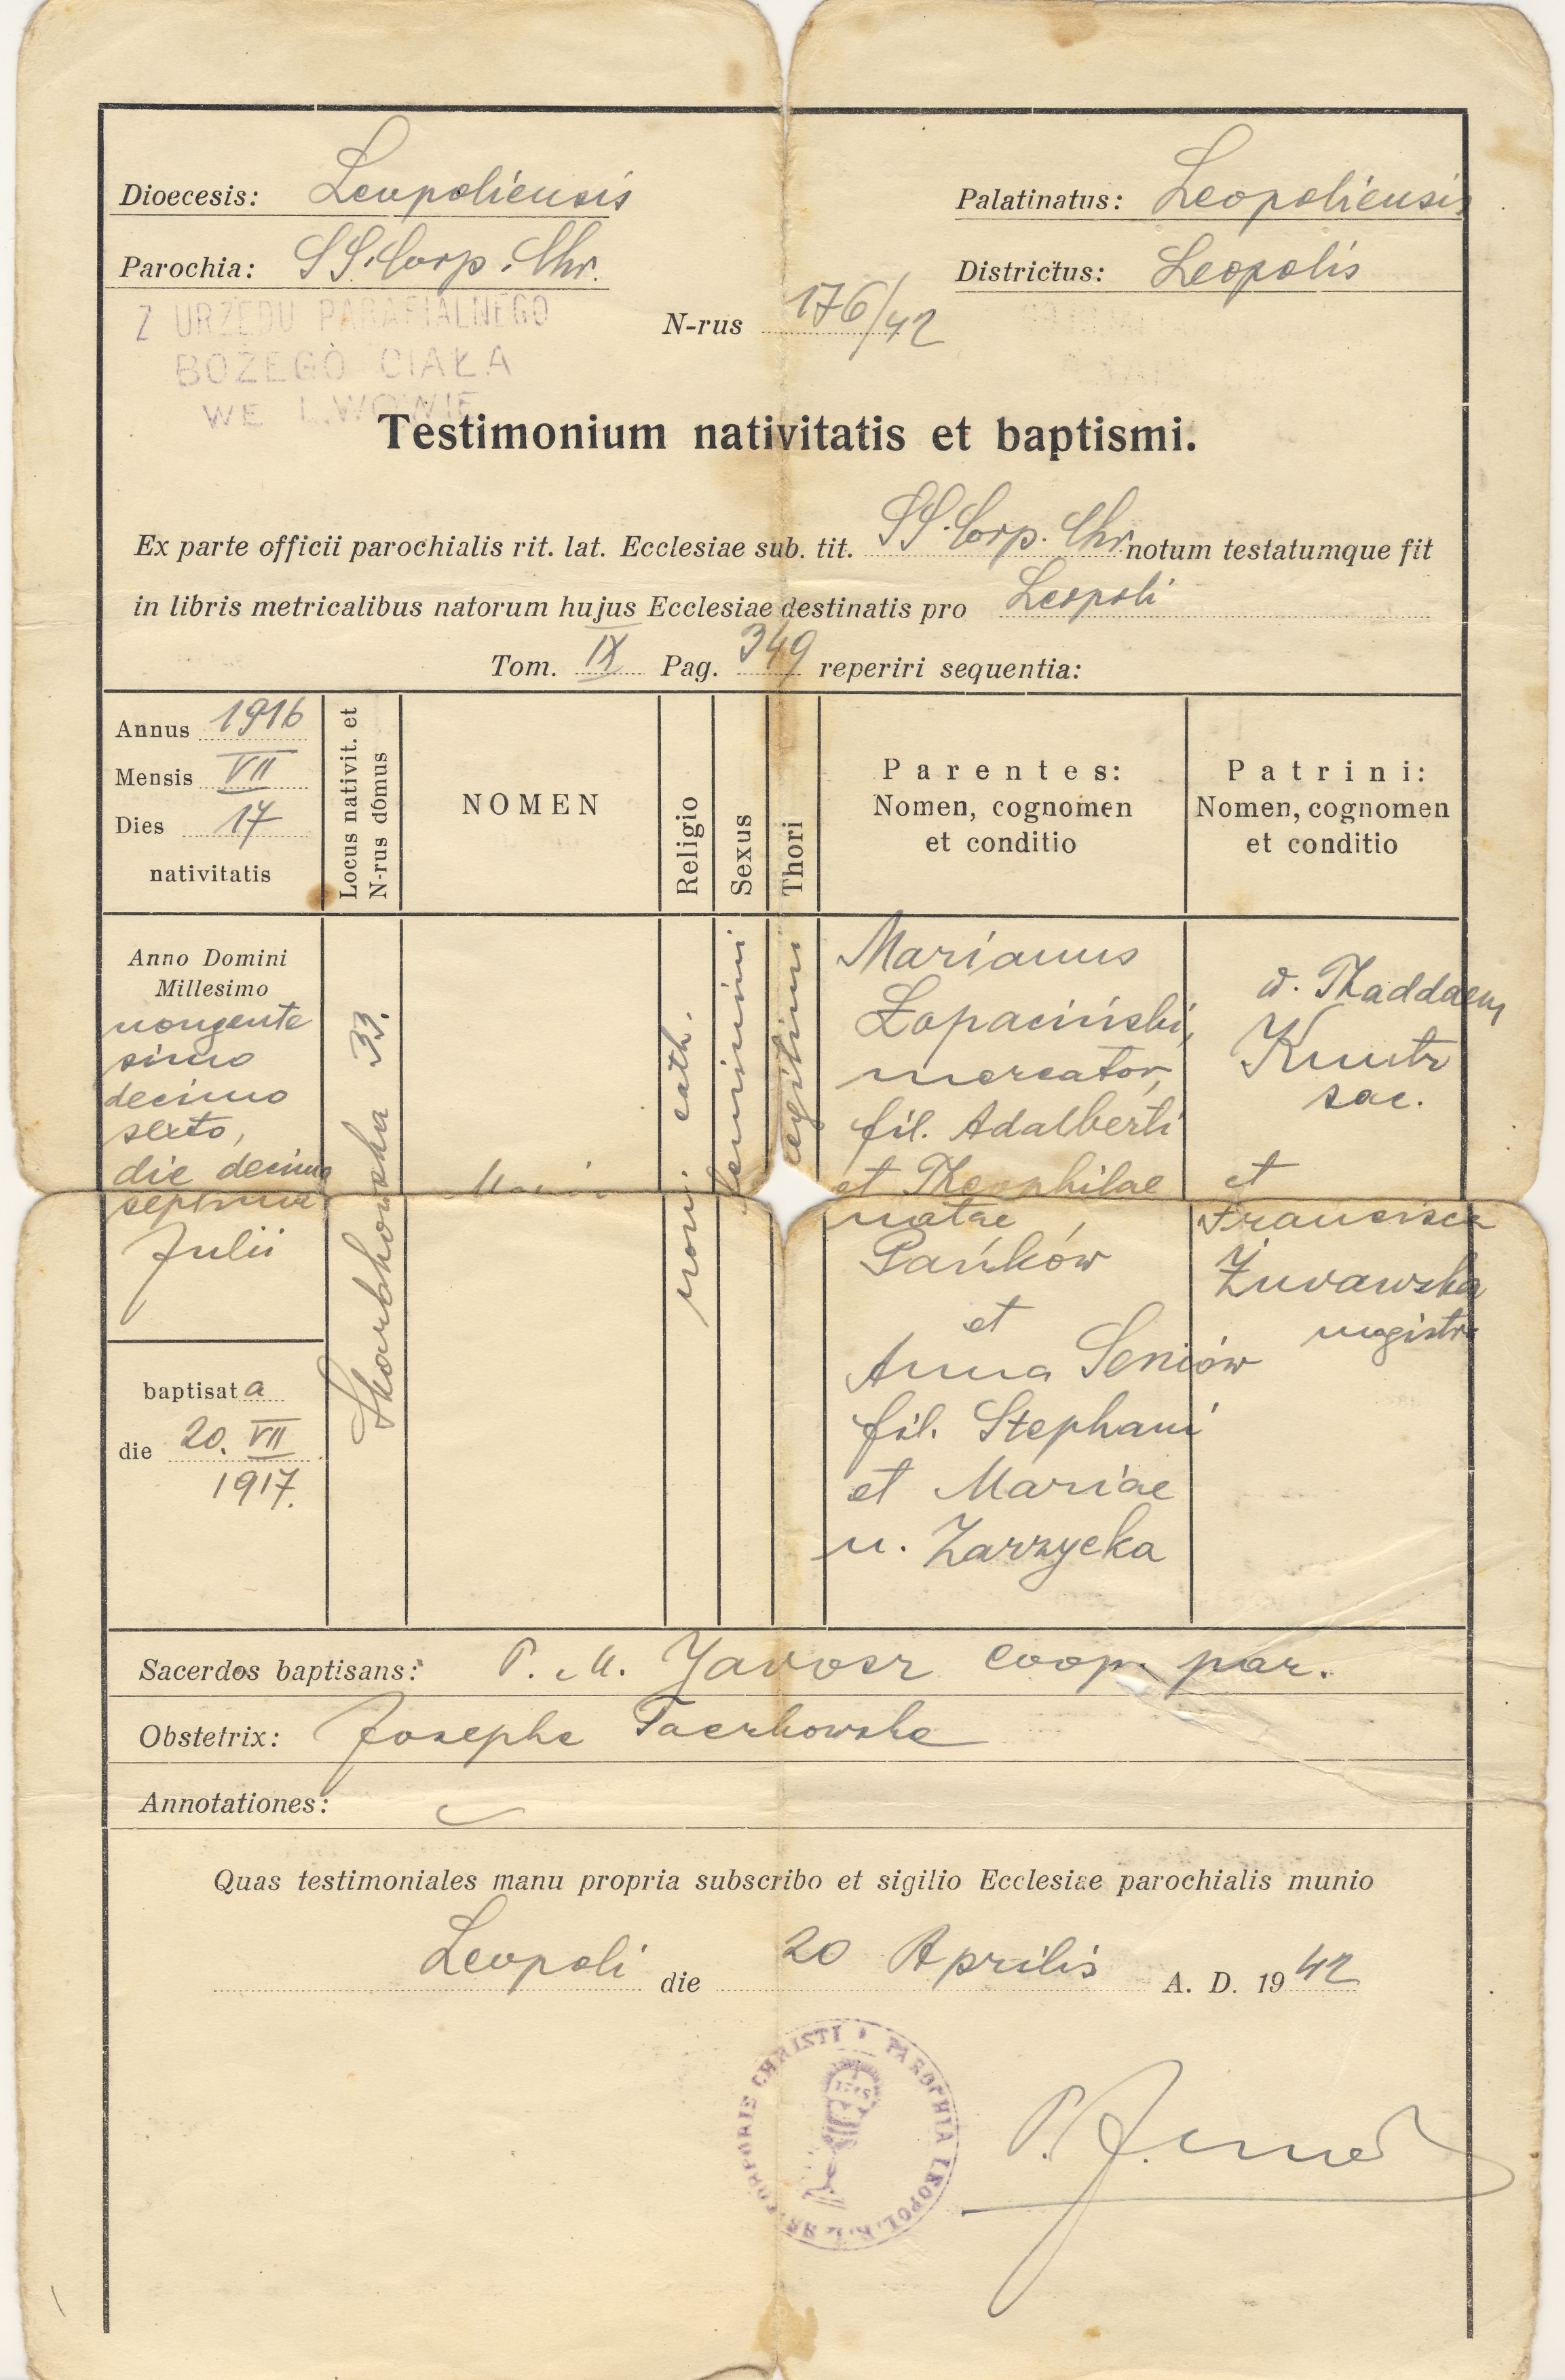 Dioecesis: Leopoliensis
Palatinatus: Leopoliensis
Parochia: SS. Corp. Chr.
Districtus: Leopolis
Z URZĘDU PARAFIALNEGO
BOŻEGO CIAŁA
WE LWOWIE
N-rus 176/42
Testimonium nativitatis et baptismi.
Ex parte officii parochialis rit. lat. Ecclesiae sub. tit. SS. Corp. Chr. notum testatumque fit
in libris metricalibus natorum hujus Ecclesiae destinatis pro Leopoli
Tom. IX Pag. 349 reperiri sequentia:
Annus 1916
Mensis VII
Dies 17
nativitatis
Locus nativit. et
N-rus domus
NOMEN
Religio
Sexus
Thori
Parentes:
Nomen, cognomen
et conditio
Patrini:
Nomen, cognomen
et conditio
Anno Domini
Millesimo
nongente
simo
decimo
sexto,
die decima
septima
Julii
baptisata
die 20. VII
1917.
Skarbkowska 33.
Maria
rom. cath.
feminini
legitimi
Marianus
Łopaciński,
mercator,
fil. Adalberti
et Theophilae
natae
Pańków
et
Anna Seniów
fil. Stephani
et Mariae
n. Zarzycka
Thaddaeus
sac.
et
Francisca
Żurawska
magistra
Sacerdos baptisans: P. M. Jarosz coop. par.
Obstetrix: Josepha
Annotationes:
Quas testimoniales manu propria subscribo et sigilio Ecclesiae parochialis munio
Leopoli die 20 Aprilis A. D. 1942
SS. CORPORIS CHRISTI • PAROCHIA LEOPOL. R. L.